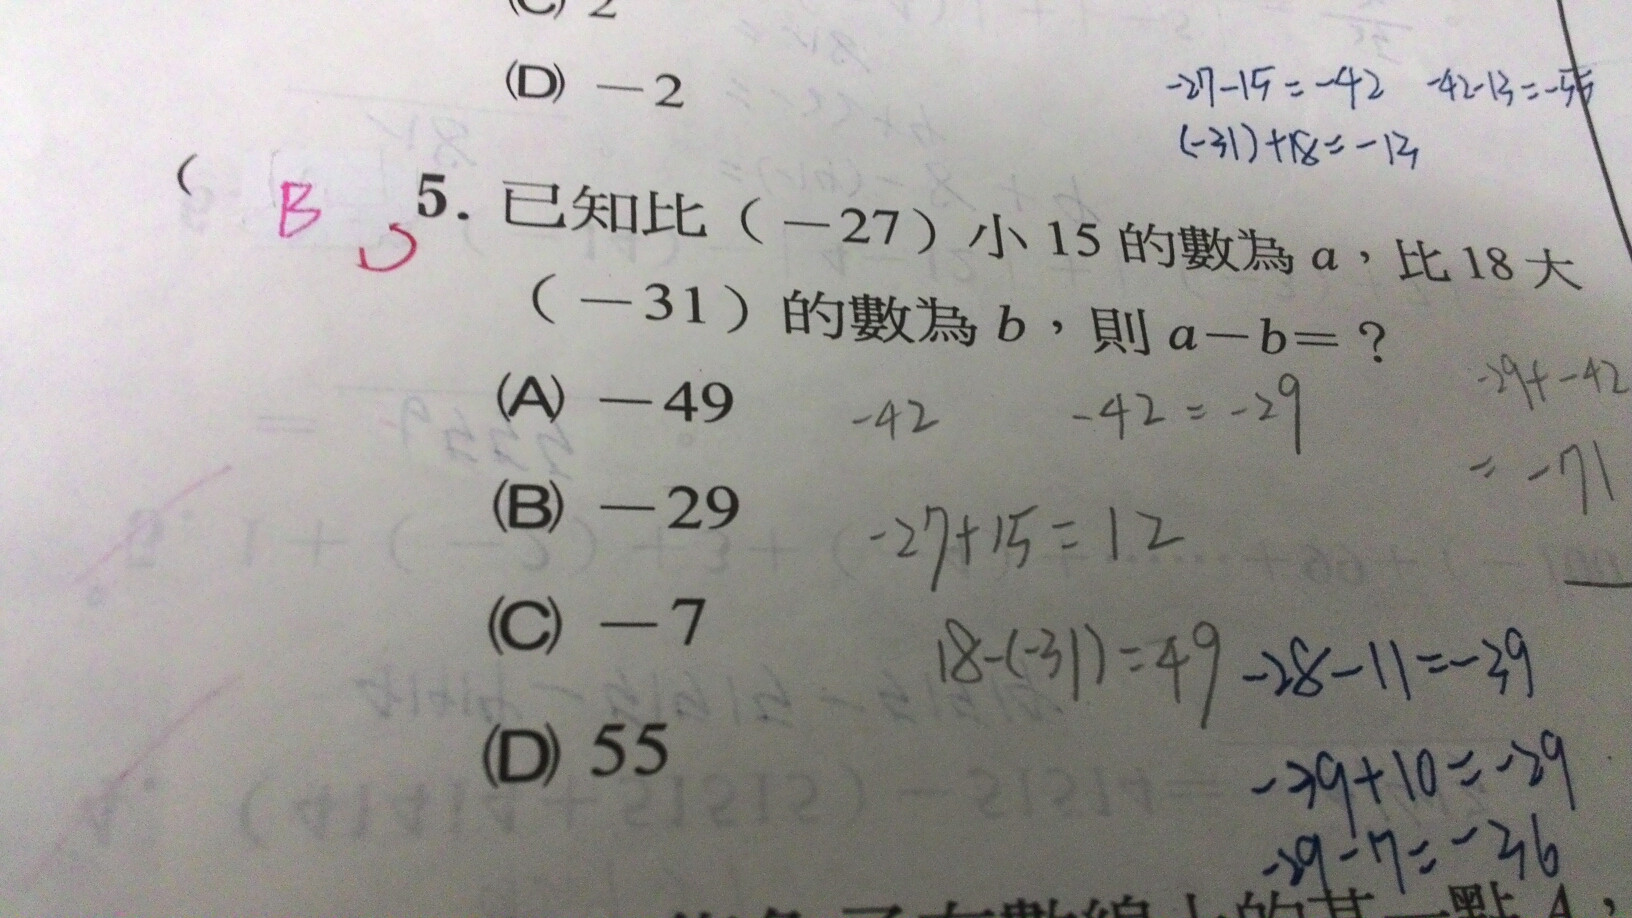 (C) 2
(D) －2
-27-15=-42 -42-13=-55
(-31)+18=-13
( B 5. 已知比（－27）小 15 的數為 a，比 18 大
（－31）的數為 b，則 a－b=？
(A) －49
-42 -42=-29
-29+-42
=-71
(B) －29
-27+15=12
(C) －7
18-(-31)=49
-28-11=-39
(D) 55
-39+10=-29
-29-7=-36